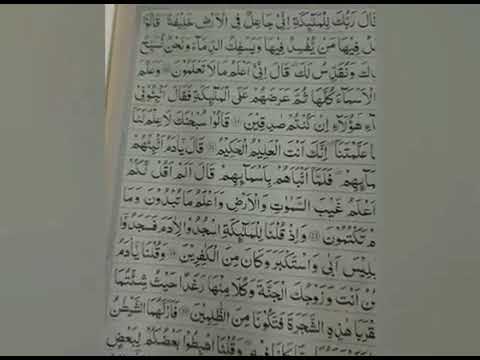 قَالَ رَبُّكَ لِلْمَلٰٓئِكَةِ اِنِّیْ جَاعِلٌ فِی الْاَرْضِ خَلِیْفَةً قَالُوْۤا
لُ فِیْهَا مَنْ یُّفْسِدُ فِیْهَا وَیَسْفِكُ الدِّمَآءَ وَنَحْنُ نُسَبِّحُ
كَ وَنُقَدِّسُ لَكَ قَالَ اِنِّیْۤ اَعْلَمُ مَا لَا تَعْلَمُوْنَ وَعَلَّمَ
الْاَسْمَآءَ كُلَّهَا ثُمَّ عَرَضَهُمْ عَلَی الْمَلٰٓئِكَةِ فَقَالَ اَنْۢبِـُٔوْنِیْ
آءِ هٰۤؤُلَآءِ اِنْ كُنْتُمْ صٰدِقِیْنَ قَالُوْا سُبْحٰنَكَ لَا عِلْمَ لَنَاۤ
ا عَلَّمْتَنَا اِنَّكَ اَنْتَ الْعَلِیْمُ الْحَكِیْمُ قَالَ یٰۤاٰدَمُ اَنْۢبِئْهُمْ
مَآئِهِمْ فَلَمَّاۤ اَنْۢبَاَهُمْ بِاَسْمَآئِهِمْ قَالَ اَلَمْ اَقُلْ لَّكُمْ
اَعْلَمُ غَیْبَ السَّمٰوٰتِ وَالْاَرْضِ وَاَعْلَمُ مَا تُبْدُوْنَ وَمَا
مْ تَكْتُمُوْنَ وَاِذْ قُلْنَا لِلْمَلٰٓئِكَةِ اسْجُدُوْا لِاٰدَمَ فَسَجَدُوْۤا
بْلِیْسَ اَبٰی وَاسْتَكْبَرَ وَكَانَ مِنَ الْكٰفِرِیْنَ وَقُلْنَا یٰۤاٰدَمُ
نْ اَنْتَ وَزَوْجُكَ الْجَنَّةَ وَكُلَا مِنْهَا رَغَدًا حَیْثُ شِئْتُمَا
تَقْرَبَا هٰذِهِ الشَّجَرَةَ فَتَكُوْنَا مِنَ الظّٰلِمِیْنَ فَاَزَلَّهُمَا الشَّیْطٰنُ
كَانَا فِیْهِ وَقُلْنَا اهْبِطُوْا بَعْضُكُمْ لِبَعْضٍ